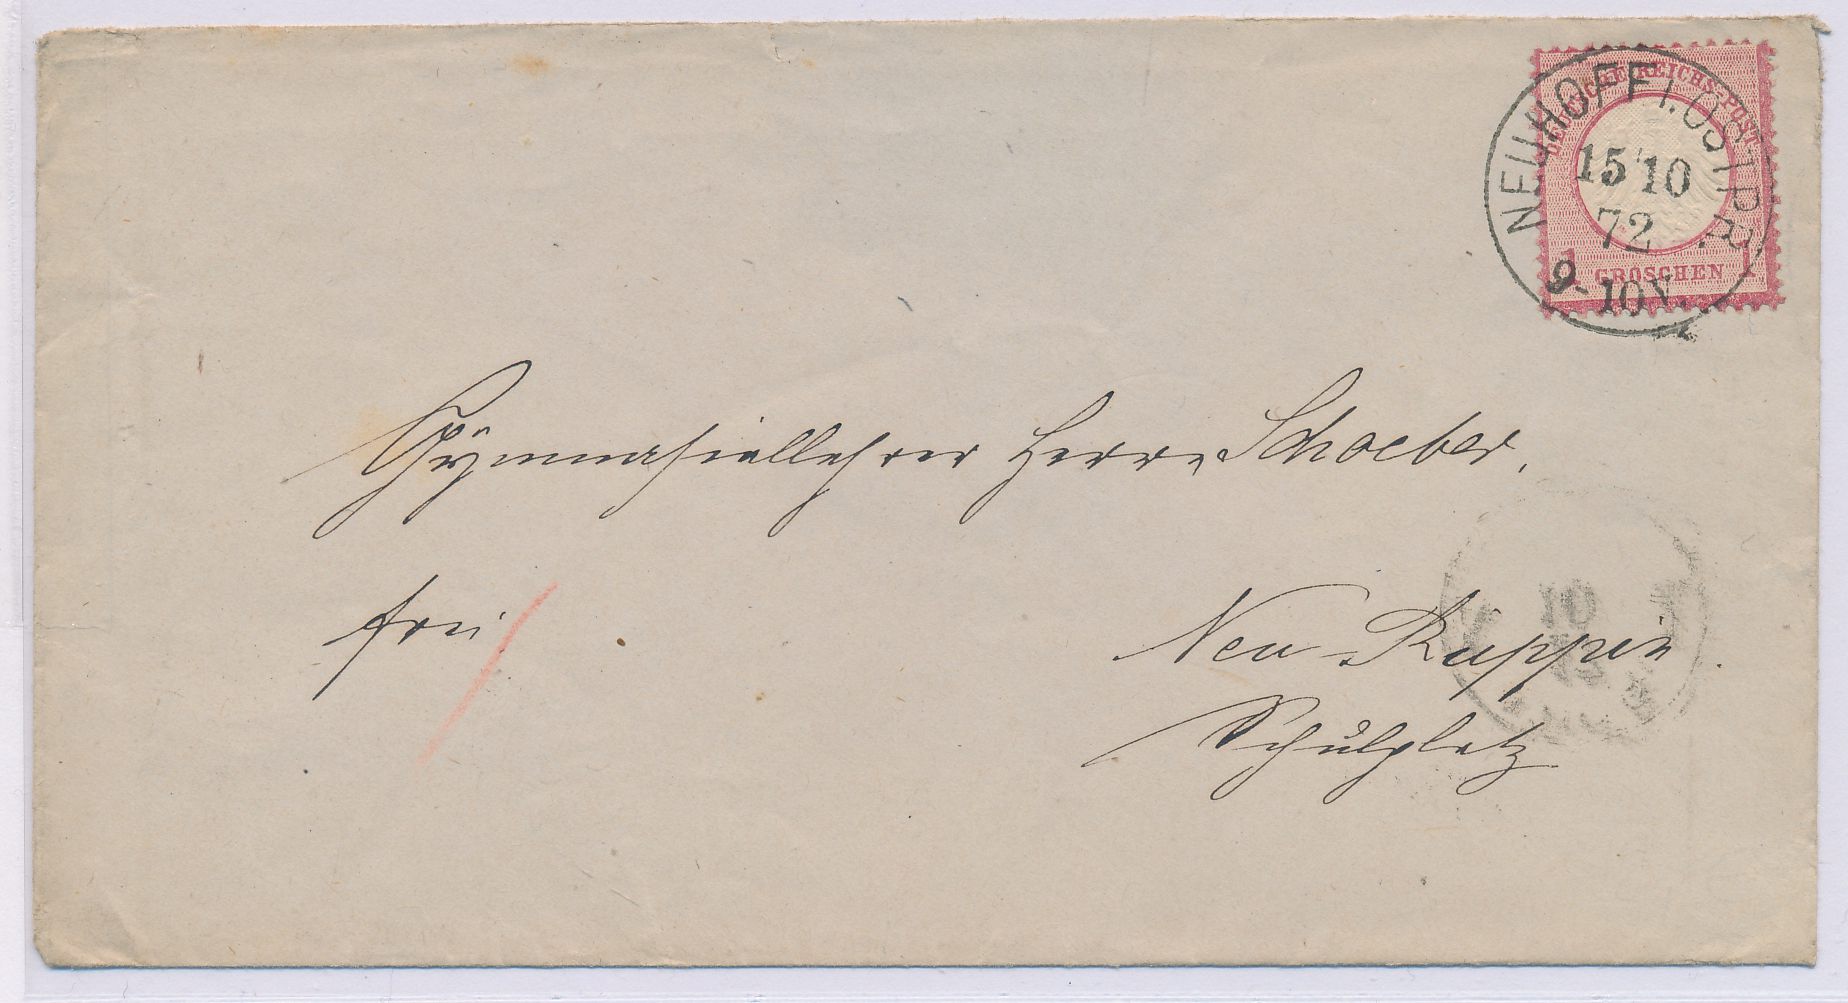 NEUHOFF I. OSTPR.
15 10
72
9-10N.
DEUTSCHE REICHS-POST
1 GROSCHEN 1
Gymnasiallehrer Herrn Schoeber.
frei
Neu-Ruppin.
Schulplatz
10